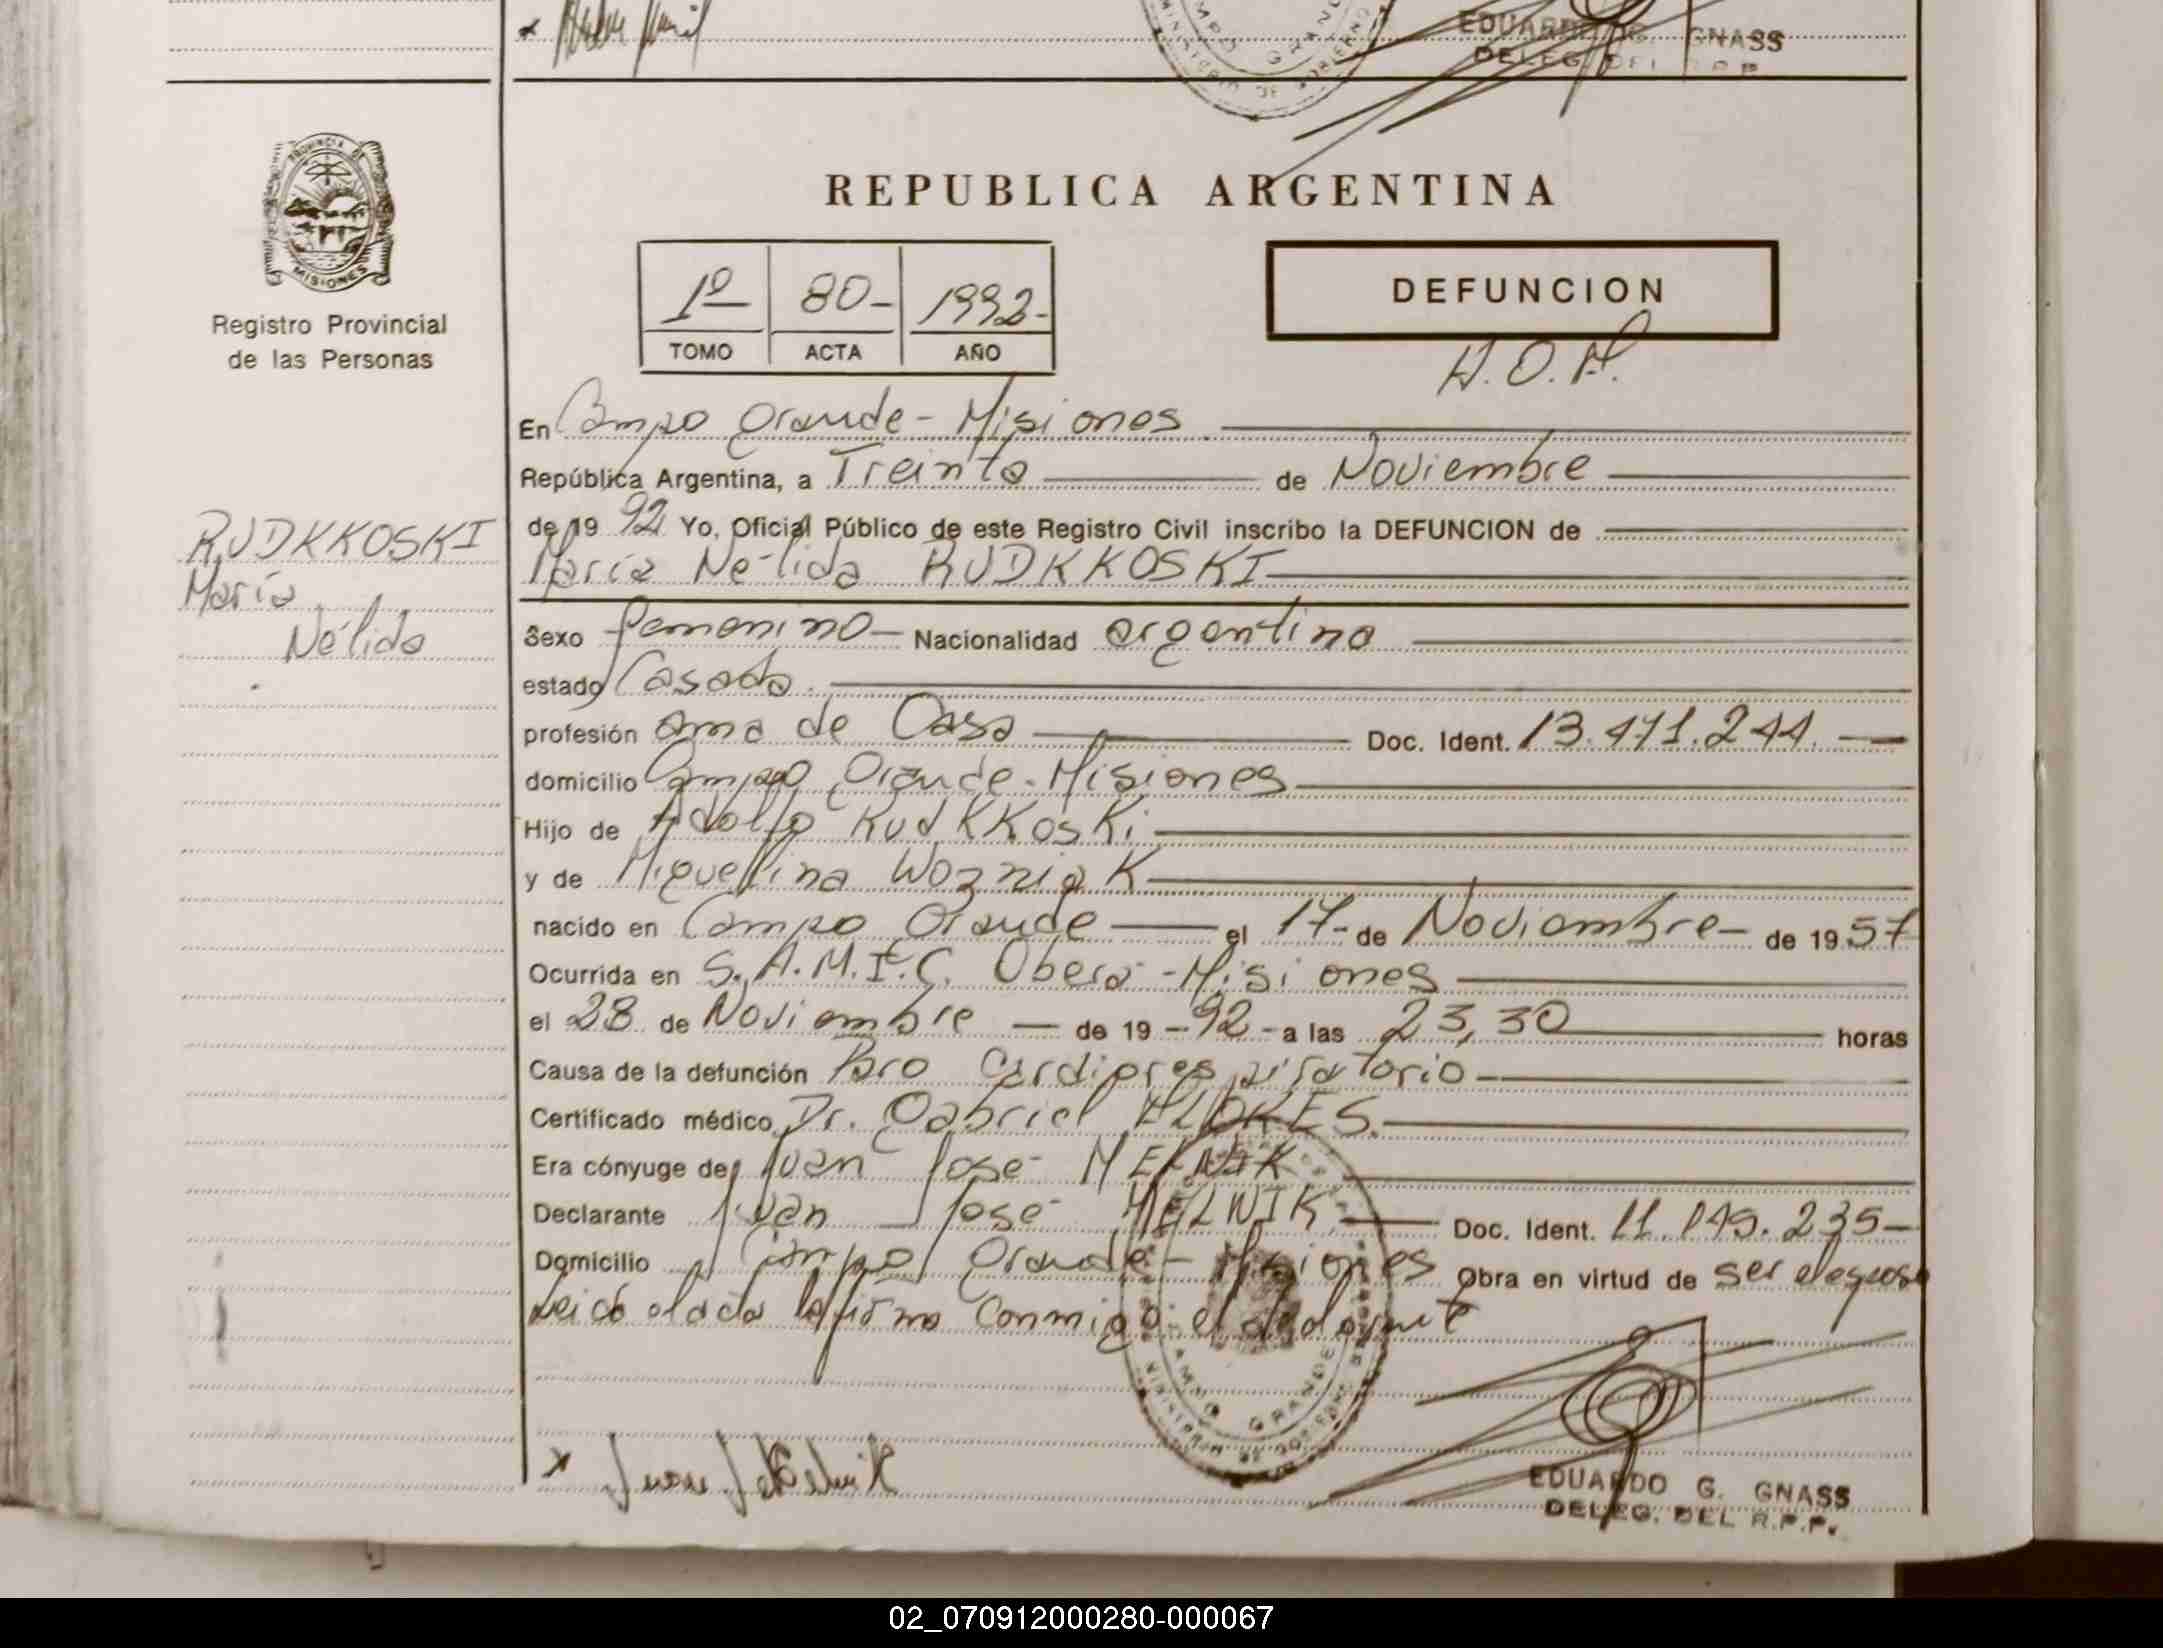 EDUARDO G. GNASS
DELEG. DEL R.P.P.
PROVINCIA DE
MISIONES
Registro Provincial
de las Personas
REPUBLICA ARGENTINA
1º 80- 1992-
TOMO ACTA AÑO
DEFUNCION
En Campo Grande - Misiones
República Argentina, a Treinta de Noviembre
de 1992 Yo, Oficial Público de este Registro Civil inscribo la DEFUNCION de
María Nélida RUDKKOSKI
RUDKKOSKI
María
Nélida
Sexo femenino - Nacionalidad argentina
estado Casada.
profesión ama de Casa Doc. Ident. 13.471.244.
domicilio Campo Grande - Misiones
Hijo de Adolfo RudKKosKi
y de Miguelina WozniaK
nacido en Campo Grande el 17- de Noviembre - de 1957
Ocurrida en S.A.M.I.C. Oberá - Misiones
el 28 de Noviembre de 19-92- a las 23,30 horas
Causa de la defunción Paro Cardiorespiratorio
Certificado médico Dr. Gabriel FLORES.
Era cónyuge de Juan José MELNIK
Declarante Juan José MELNIK Doc. Ident. 11.145.235-
Domicilio Campo Grande - Misiones Obra en virtud de ser el esposo
Leída el acta la firma conmigo el declarante
CAMPO GRANDE
MINISTERIO DE GOBIERNO
x Juan José Melnik
EDUARDO G. GNASS
DELEG. DEL R.P.P.
02_070912000280-000067